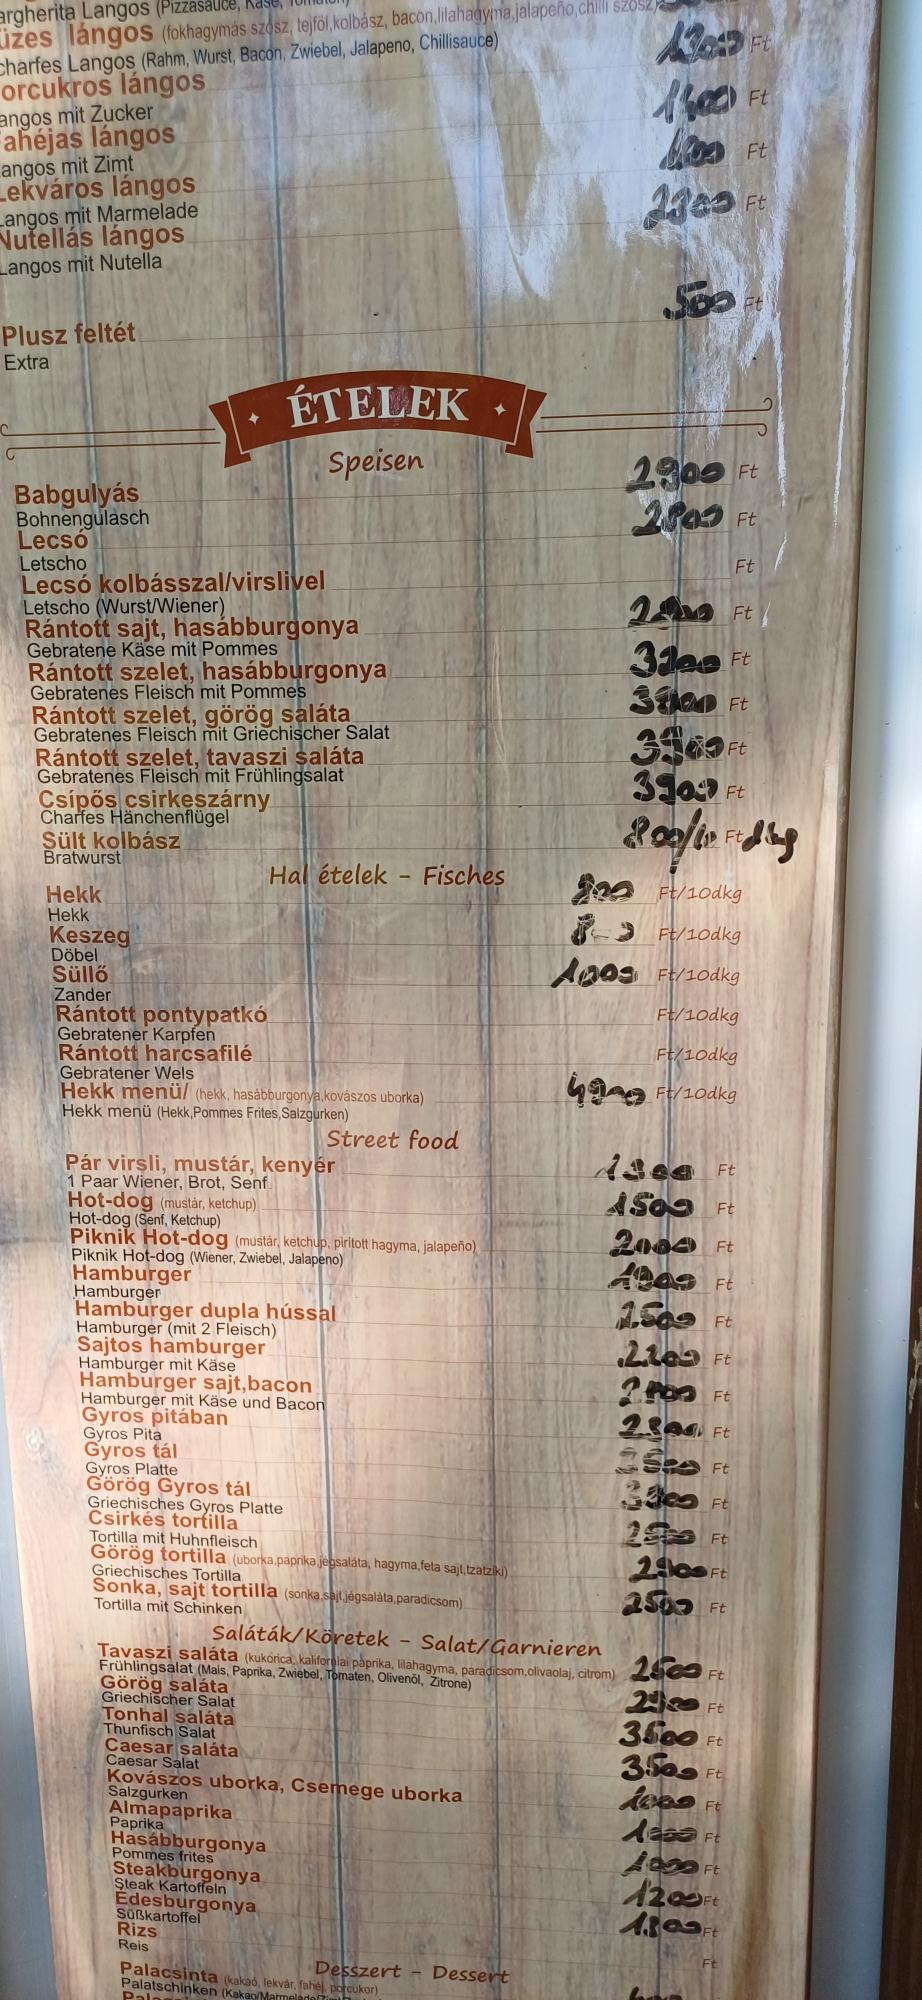 argherita Langos (Pizzasauce, Käse,
üzes lángos (fokhagymás szósz, tejföl,kolbász, bacon,lilahagyma,jalapeño,chilli szósz)
charfes Langos (Rahm, Wurst, Bacon, Zwiebel, Jalapeno, Chillisauce) Ft
orcukros lángos
angos mit Zucker 1400 Ft
ahéjas lángos
angos mit Zimt Ft
Lekváros lángos
Langos mit Marmelade 2300 Ft
Nutellás lángos
Langos mit Nutella
500 Ft
Plusz feltét
Extra
ÉTELEK
Speisen
Babgulyás 2900 Ft
Bohnengulasch
Lecsó 2800 Ft
Letscho
Lecsó kolbásszal/virslivel Ft
Letscho (Wurst/Wiener)
Rántott sajt, hasábburgonya Ft
Gebratene Käse mit Pommes
Rántott szelet, hasábburgonya 3200 Ft
Gebratenes Fleisch mit Pommes
Rántott szelet, görög saláta Ft
Gebratenes Fleisch mit Griechischer Salat
Rántott szelet, tavaszi saláta 3900 Ft
Gebratenes Fleisch mit Frühlingsalat
Csípős csirkeszárny 3900 Ft
Charfes Hänchenflügel
Sült kolbász 800/10 Ft dkg
Bratwurst
Hal ételek - Fisches
Hekk Ft/10dkg
Hekk
Keszeg Ft/10dkg
Döbel
Süllő 1000 Ft/10dkg
Zander
Rántott pontypatkó Ft/10dkg
Gebratener Karpfen
Rántott harcsafilé Ft/10dkg
Gebratener Wels
Hekk menü/ (hekk, hasábburgonya,kovászos uborka) Ft/10dkg
Hekk menü (Hekk,Pommes Frites,Salzgurken)
Street food
Pár virsli, mustár, kenyér 1300 Ft
1 Paar Wiener, Brot, Senf
Hot-dog (mustár, ketchup) 1500 Ft
Hot-dog (Senf, Ketchup)
Piknik Hot-dog (mustár, ketchup, pirított hagyma, jalapeño) 2000 Ft
Piknik Hot-dog (Wiener, Zwiebel, Jalapeno)
Hamburger 1900 Ft
Hamburger
Hamburger dupla hússal 2500 Ft
Hamburger (mit 2 Fleisch)
Sajtos hamburger 2200 Ft
Hamburger mit Käse
Hamburger sajt,bacon Ft
Hamburger mit Käse und Bacon
Gyros pitában Ft
Gyros Pita
Gyros tál Ft
Gyros Platte
Görög Gyros tál Ft
Griechisches Gyros Platte
Csirkés tortilla 2500 Ft
Tortilla mit Huhnfleisch
Görög tortilla (uborka,paprika,jégsaláta, hagyma,feta sajt,tzatziki) 2900 Ft
Griechisches Tortilla
Sonka, sajt tortilla (sonka,sajt,jégsaláta,paradicsom) 2500 Ft
Tortilla mit Schinken
Saláták/Köretek - Salat/Garnieren
Tavaszi saláta (kukorica, kaliforniai paprika, lilahagyma, paradicsom,olivaolaj, citrom) 2500 Ft
Frühlingsalat (Mais, Paprika, Zwiebel, Tomaten, Olivenöl, Zitrone)
Görög saláta 2900 Ft
Griechischer Salat
Tonhal saláta 3500 Ft
Thunfisch Salat
Caesar saláta 3500 Ft
Caesar Salat
Kovászos uborka, Csemege uborka 1000 Ft
Salzgurken
Almapaprika 1000 Ft
Paprika
Hasábburgonya 1000 Ft
Pommes frites
Steakburgonya 1200 Ft
Steak Kartoffeln
Édesburgonya 1300 Ft
Süßkartoffel
Rizs Ft
Reis
Desszert - Dessert
Palacsinta (kakaó, lekvár, fahéj, porcukor)
Palatschinken